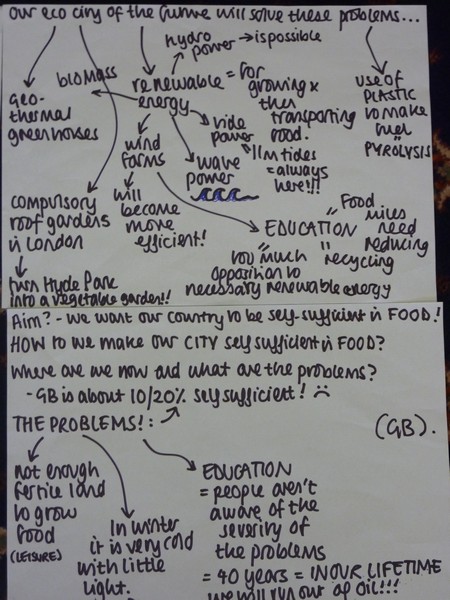 our eco city of the future will solve these problems...
hydro
power → is possible
biomass
geo-
thermal
greenhouses
renewable = for
energy
growing x
then
transporting
food.
use of
PLASTIC
to make
fuel
"
PYROLYSIS
wind
farms
tide
power
" 11m tides
= always
here!!!
wave
power
will
become
more
efficient!
compulsory
roof gardens
in London
turn Hyde Park
into a vegetable garden!!
EDUCATION
" Food
miles
need
reducing
"
too much
opposition to
necessary renewable energy
"
recycling
Aim? - we want our country to be self-sufficient in FOOD!
HOW to we make our CITY self sufficient in FOOD?
Where are we now and what are the problems?
- GB is about 10/20% self sufficient! ☹
THE PROBLEMS! :
(GB).
not enough
fertile land
to grow
food
(LEISURE)
In winter
it is very cold
with little
light.
EDUCATION
= people aren't
aware of the
severity of
the problems
= 40 years = IN OUR LIFETIME
we will run out of oil!!!